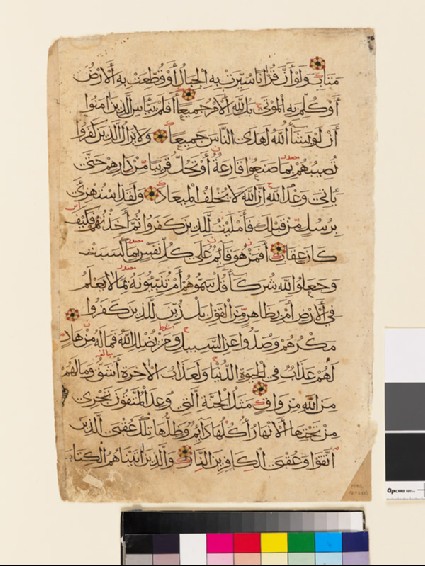 متاب ولو ان قرانا سيرت به الجبال او قطعت به الارض
او كلم به الموتى بل لله الامر جميعا افلم ييأس الذين امنوا
ان لو يشاء الله لهدى الناس جميعا ولا يزال الذين كفروا
تصيبهم بما صنعوا قارعة او تحل قريبا من دارهم حتى
يأتي وعد الله ان الله لا يخلف الميعاد ولقد استهزئ
برسل من قبلك فأمليت للذين كفروا ثم اخذتهم فكيف
كان عقاب افمن هو قائم على كل نفس بما كسبت
وجعلوا لله شركاء قل سموهم ام تنبئونه بما لا يعلم
في الارض ام بظاهر من القول بل زين للذين كفروا
مكرهم وصدوا عن السبيل ومن يضلل الله فما له من هاد
لهم عذاب في الحيوة الدنيا ولعذاب الاخرة اشق وما لهم
من الله من واق مثل الجنة التي وعد المتقون تجري
من تحتها الانهار اكلها دائم وظلها تلك عقبى الذين
اتقوا وعقبى الكافرين النار والذين اتيناهم الكتاب